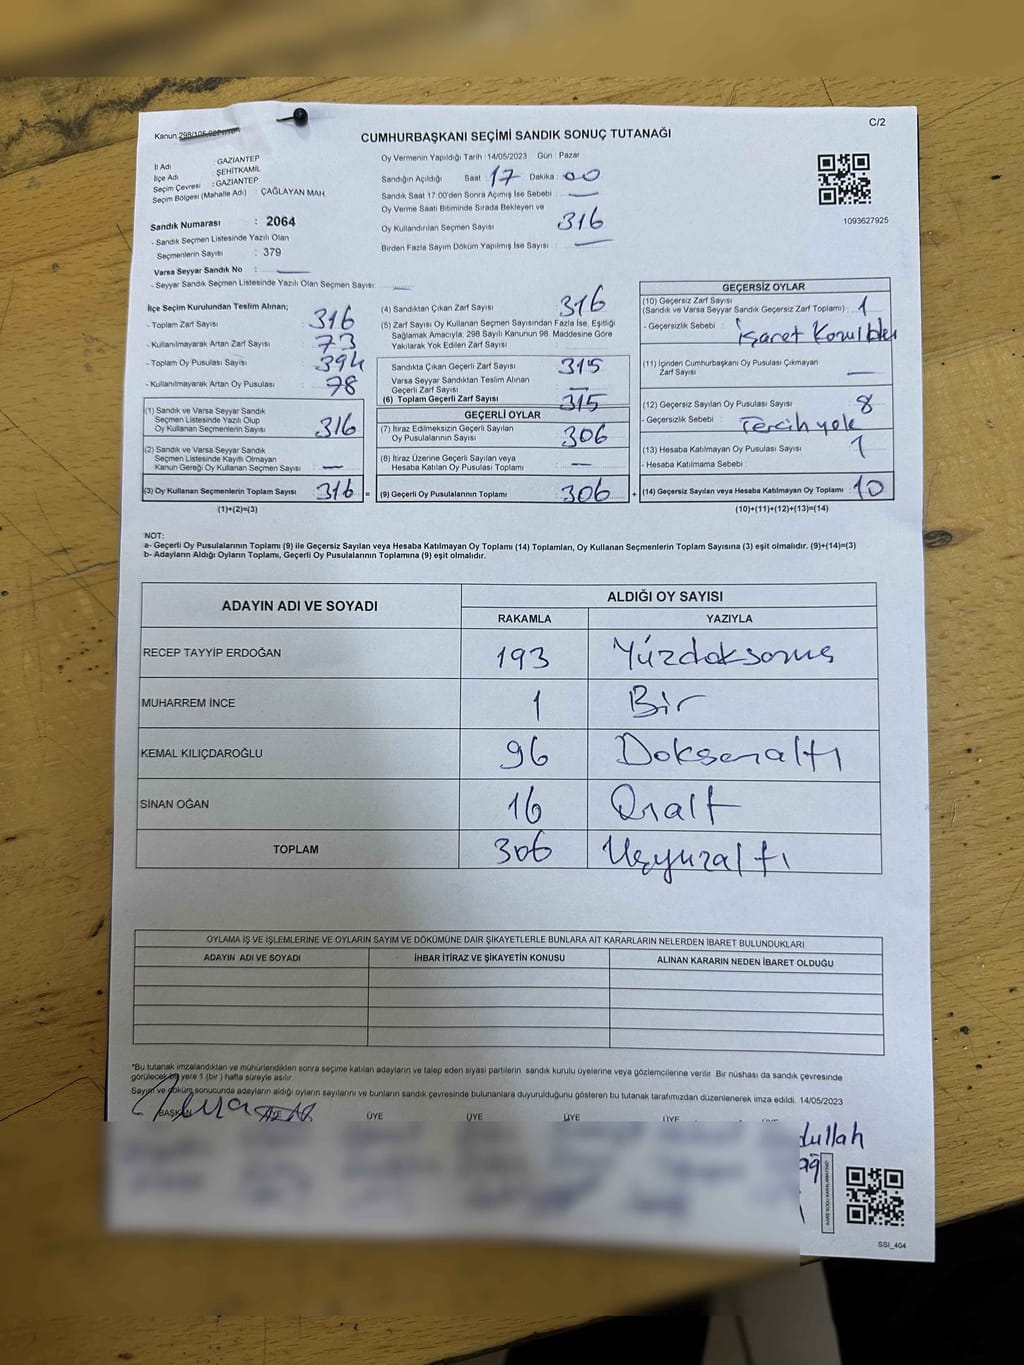 C/2
CUMHURBAŞKANI SEÇİMİ SANDIK SONUÇ TUTANAĞI
İl Adı : GAZİANTEP
İlçe Adı : ŞEHİTKAMİL
Seçim Çevresi : GAZİANTEP
Seçim Bölgesi (Mahalle Adı) : ÇAĞLAYAN MAH.
Sandık Numarası : 2064
- Sandık Seçmen Listesinde Yazılı Olan
Seçmenlerin Sayısı : 379
Varsa Seyyar Sandık No :
- Seyyar Sandık Seçmen Listesinde Yazılı Olan Seçmen Sayısı:
Oy Vermenin Yapıldığı Tarih : 14/05/2023 Gün : Pazar
Sandığın Açıldığı Saat : 17 Dakika : 00
Sandık Saat 17.00'den Sonra Açılmış İse Sebebi :
Oy Verme Saati Bitiminde Sırada Bekleyen ve
Oy Kullandırılan Seçmen Sayısı : 316
Birden Fazla Sayım Döküm Yapılmış İse Sayısı :
1093627925
İlçe Seçim Kurulundan Teslim Alınan;
- Toplam Zarf Sayısı : 316
- Kullanılmayarak Artan Zarf Sayısı : 73
- Toplam Oy Pusulası Sayısı : 394
- Kullanılmayarak Artan Oy Pusulası : 78
(1) Sandık ve Varsa Seyyar Sandık
Seçmen Listesinde Yazılı Olup
Oy Kullanan Seçmenlerin Sayısı : 316
(2) Sandık ve Varsa Seyyar Sandık
Seçmen Listesinde Kayıtlı Olmayan
Kanun Gereği Oy Kullanan Seçmen Sayısı :
(3) Oy Kullanan Seçmenlerin Toplam Sayısı : 316 =
(1)+(2)=(3)
(4) Sandıktan Çıkan Zarf Sayısı : 316
(5) Zarf Sayısı Oy Kullanan Seçmen Sayısından Fazla İse, Eşitliği
Sağlamak Amacıyla, 298 Sayılı Kanunun 98. Maddesine Göre
Yakılarak Yok Edilen Zarf Sayısı :
Sandıkta Çıkan Geçerli Zarf Sayısı : 315
Varsa Seyyar Sandıktan Teslim Alınan
Geçerli Zarf Sayısı :
(6) Toplam Geçerli Zarf Sayısı : 315
GEÇERLİ OYLAR
(7) İtiraz Edilmeksizin Geçerli Sayılan
Oy Pusulalarının Sayısı : 306
(8) İtiraz Üzerine Geçerli Sayılan veya
Hesaba Katılan Oy Pusulası Toplamı :
(9) Geçerli Oy Pusulalarının Toplamı : 306 +
GEÇERSİZ OYLAR
(10) Geçersiz Zarf Sayısı
(Sandık ve Varsa Seyyar Sandık Geçersiz Zarf Toplamı) : 1
- Geçersizlik Sebebi : işaret
(11) İçinden Cumhurbaşkanı Oy Pusulası Çıkmayan
Zarf Sayısı :
(12) Geçersiz Sayılan Oy Pusulası Sayısı : 8
- Geçersizlik Sebebi : Tercih yok
(13) Hesaba Katılmayan Oy Pusulası Sayısı : 1
- Hesaba Katılmama Sebebi :
(14) Geçersiz Sayılan veya Hesaba Katılmayan Oy Toplamı : 10
(10)+(11)+(12)+(13)=(14)
NOT:
a- Geçerli Oy Pusulalarının Toplamı (9) ile Geçersiz Sayılan veya Hesaba Katılmayan Oy Toplamı (14) Toplamları, Oy Kullanan Seçmenlerin Toplam Sayısına (3) eşit olmalıdır. (9)+(14)=(3)
b- Adayların Aldığı Oyların Toplamı, Geçerli Oy Pusulalarının Toplamına (9) eşit olmalıdır.
ADAYIN ADI VE SOYADI
ALDIĞI OY SAYISI
RAKAMLA YAZIYLA
RECEP TAYYİP ERDOĞAN 193
MUHARREM İNCE 1 Bir
KEMAL KILIÇDAROĞLU 96 Doksanaltı
SİNAN OĞAN 16 Onalt
TOPLAM 306 Üçyüzaltı
OYLAMA İŞ VE İŞLEMLERİNE VE OYLARIN SAYIM VE DÖKÜMÜNE DAİR ŞİKAYETLERLE BUNLARA AİT KARARLARIN NELERDEN İBARET BULUNDUKLARI
ADAYIN ADI VE SOYADI İHBAR İTİRAZ VE ŞİKAYETİN KONUSU ALINAN KARARIN NEDEN İBARET OLDUĞU
*Bu tutanak imzalandıktan ve mühürlendikten sonra seçime katılan adayların ve talep eden siyasi partilerin sandık kurulu üyelerine veya gözlemcilerine verilir. Bir nüshası da sandık çevresinde
görülecek bir yere 1 (bir) hafta süreyle asılır.
Sayım ve döküm sonucunda adayların aldığı oyların sayılarını ve bunların sandık çevresinde bulunanlara duyurulduğunu gösteren bu tutanak tarafımızdan düzenlenerek imza edildi. 14/05/2023
BAŞKAN ÜYE ÜYE ÜYE ÜYE ÜYE
dullah
SSİ_404